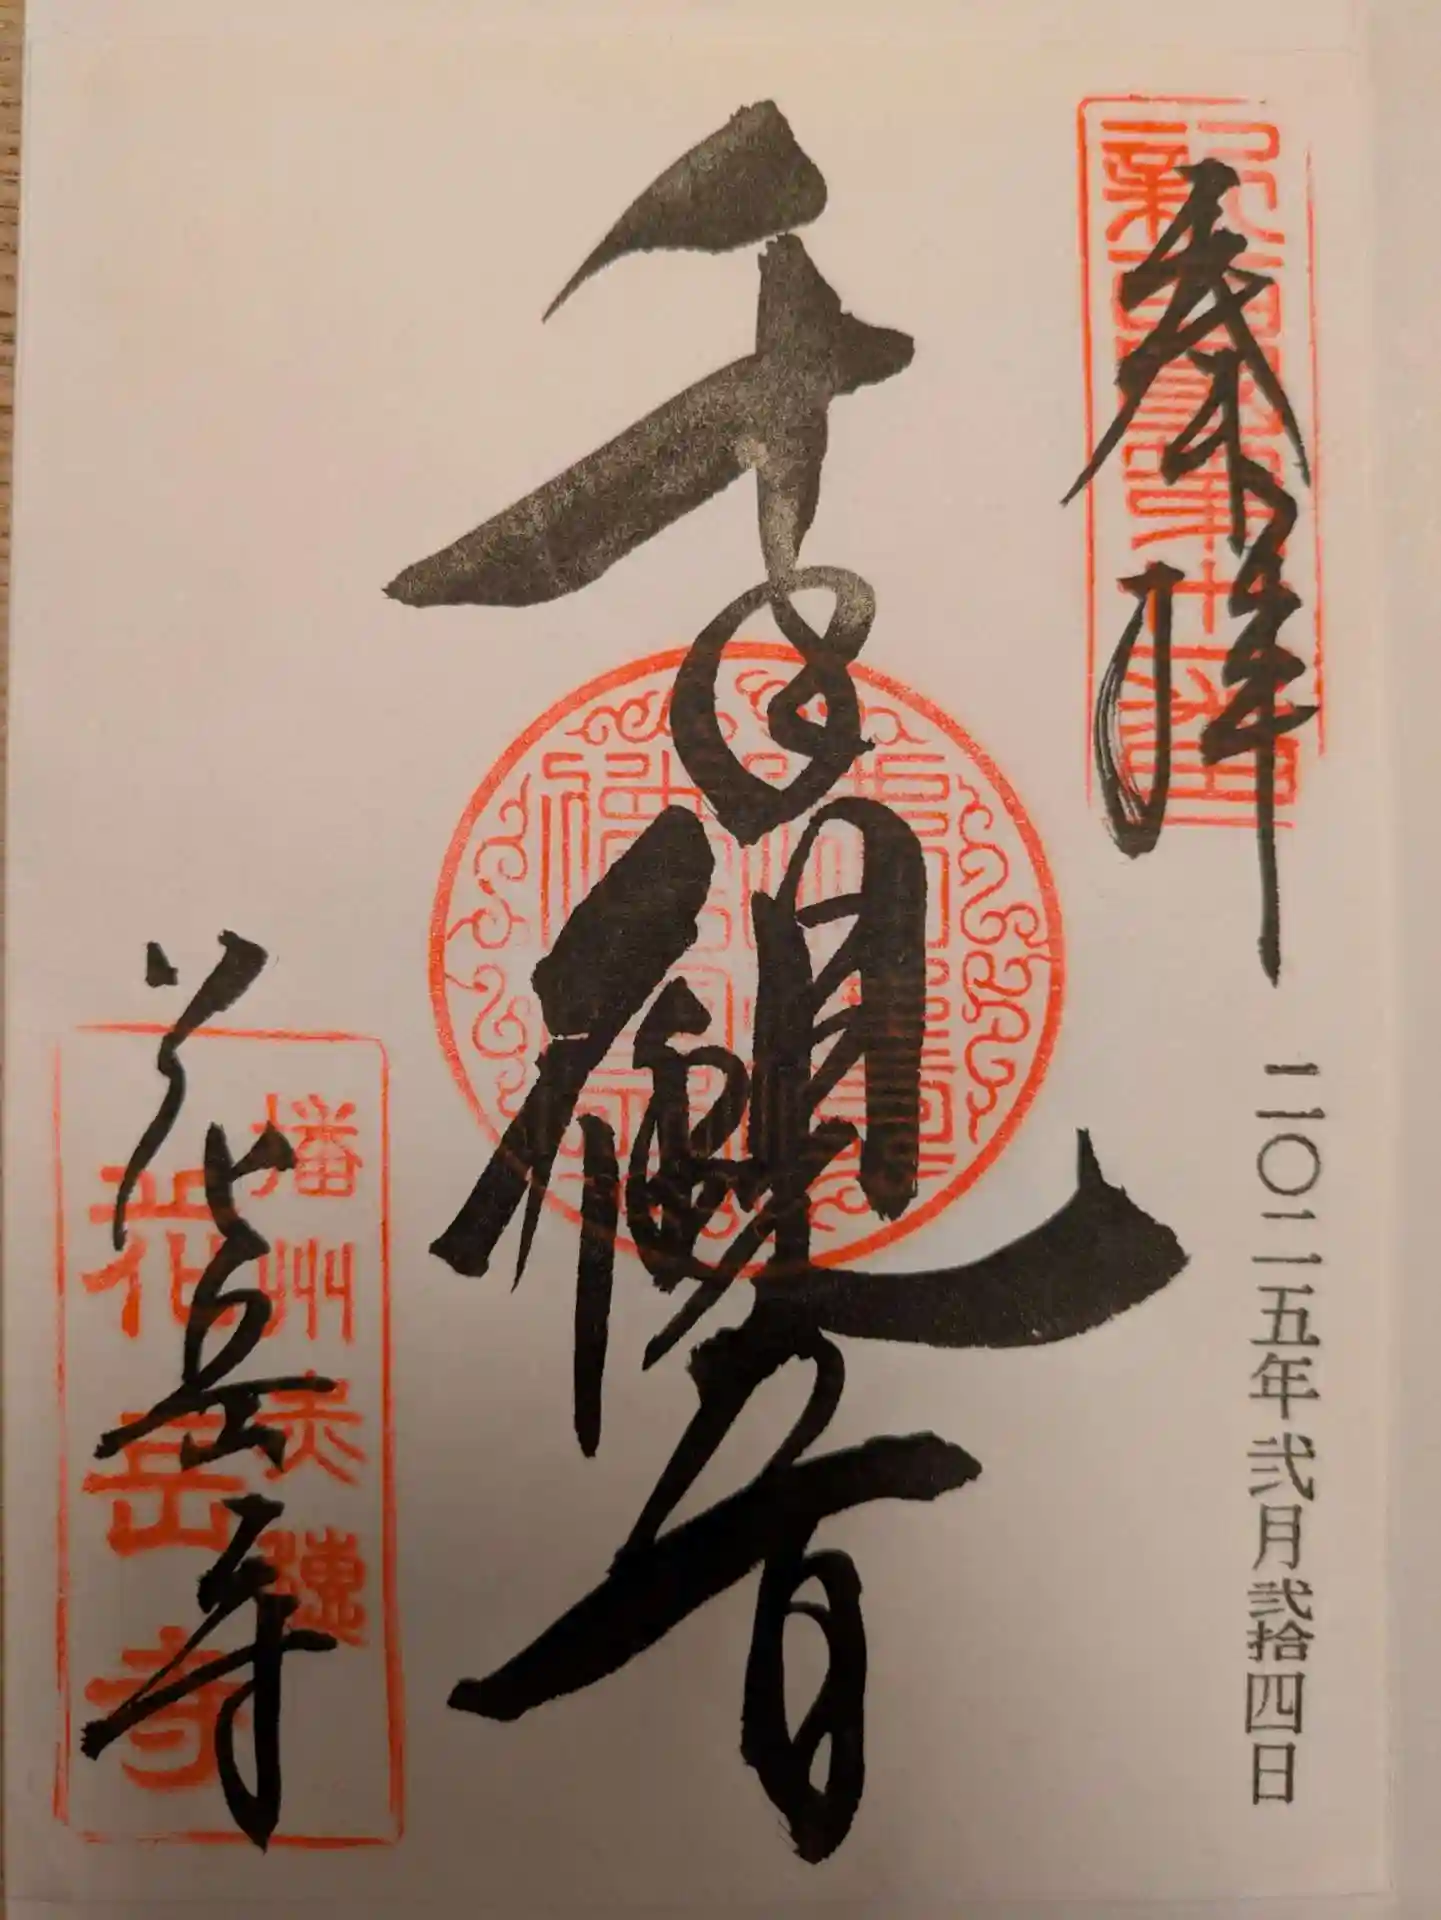 奉拝
二〇二五年弐月弐拾四日
千手観音
播州赤穂
花岳寺
花岳寺